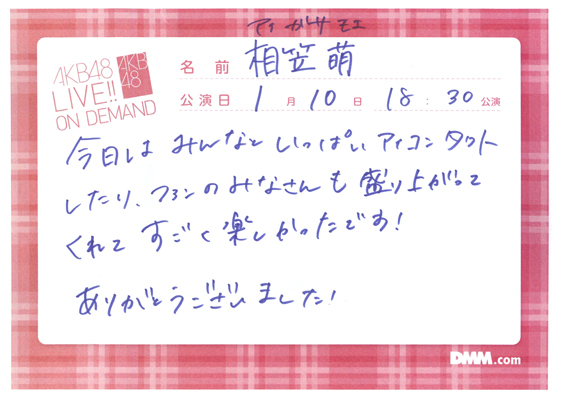 アイ がサ モエ
AKB48
LIVE!!
ON DEMAND
AKB
48
名前 相笠萌
公演日 1月10日 18:30公演
今日は みんなと いっぱい アイコンタクト
したり、ファンのみなさんも盛り上がって
くれて すごく楽しかったです!
ありがとうございました!
DMM.com